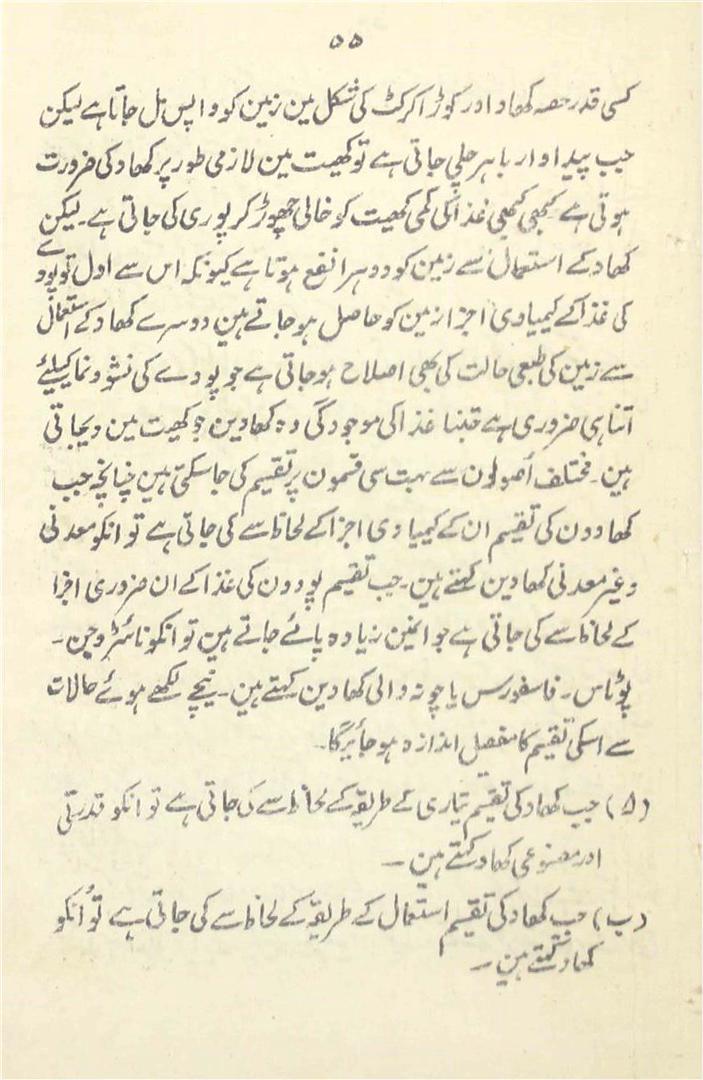 ۵۵
کسی قدر حصہ کھاد اور کوڑا کرکٹ کی شکل مین زمین کو واپس مل جاتا ہے لیکن
جب پیداوار باہر چلی جاتی ہے تو کھیت مین لازمی طور پر کھاد کی ضرورت
ہوتی ہے کبھی کبھی غذا کی کمی کھیت کو خالی چھوڑ کر پوری کی جاتی ہے۔ لیکن
کھاد کے استعمال سے زمین کو دوہرا نفع ہوتا ہے کیونکہ اس سے اول تو پودے
کی غذا کے کیمیاوی اجزا زمین کو حاصل ہو جاتے ہین دوسرے کھاد کے استعمال
سے زمین کی طبعی حالت کی بھی اصلاح ہو جاتی ہے جو پودے کی نشو و نما کیلئے
اتنا ہی ضروری ہے جتنا غذا کی موجودگی وہ کھادین جو کھیت مین دیجاتی
ہین۔ مختلف اُصولون سے بہت سی قسمون پر تقیم کی جا سکتی ہین چنانچہ جب
کھادون کی تقیم ان کے کیمیاوی اجزا کے لحاظ سے کی جاتی ہے تو انکو معدنی
و غیر معدنی کھادین کہتے ہین۔ جب تقیم پودون کی غذا کے ان ضروری اجزا
کے لحاظ سے کی جاتی ہے جو انمین زیادہ پائے جاتے ہین تو انکو نائٹروجن۔
پوٹاس۔ فاسفورس یا چونہ والی کھادین کہتے ہین۔ نیچے لکھے ہوئے حالات
سے اسکی تقیم کا مفصل اندازہ ہو جائیگا۔
(۵) جب کھاد کی تقیم تیاری کے طریقہ کے لحاظ سے کی جاتی ہے تو انکو قدرتی
اور مصنوعی کھاد کہتے ہین ۔
(ب) جب کھاد کی تقیم استعمال کے طریقہ کے لحاظ سے کی جاتی ہے تو اُنکو
کھاد کہتے ہین ۔